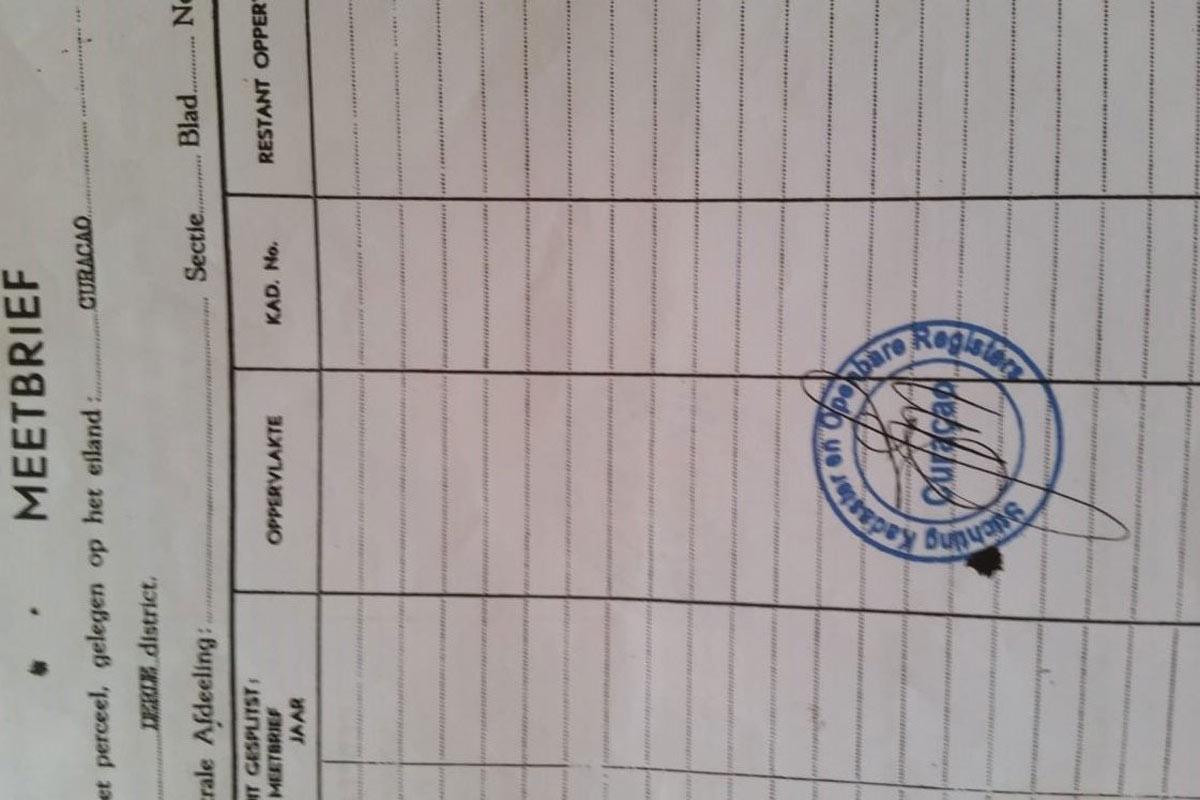 MEETBRIEF
et perceel, gelegen op het eiland: CURACAO
district.
rale Afdeeling: Sectie Blad
IT GESPLITST:
MEETBRIEF
JAAR
OPPERVLAKTE
KAD. No.
RESTANT OPPER
Stichting Kadaster en Openbare Registers
Curaçao